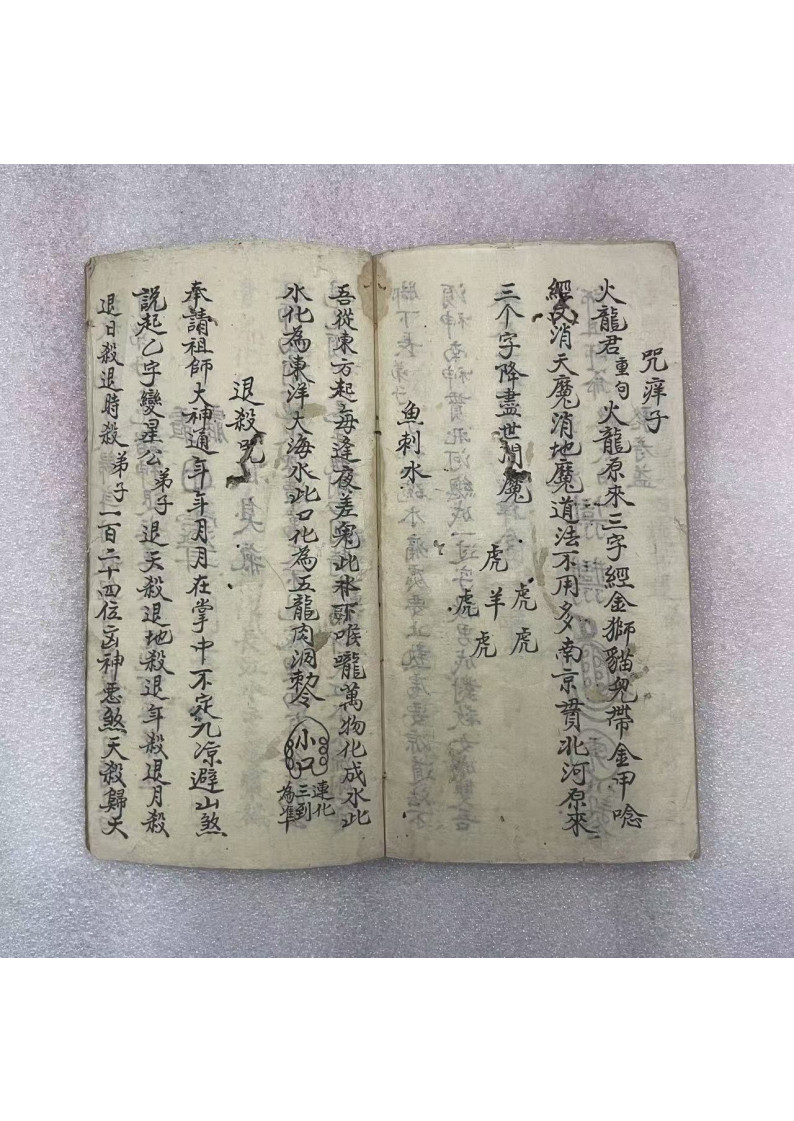 咒痒子
火龍君重句火龍原來三字經金獅貓兒帶金甲唸
經文消天魔消地魔道法不用多南京貫北河原來
三个字降盡世間魔
虎 虎
虎 羊 虎
虎
魚刺水
吾從東方起每逢夜差鬼此杯喉嚨萬物化成水此
水化為東洋大海水此口化為五龍肉洞勅令
小口
連化
三到
為準
退殺咒
奉請祖師大神通年年月月在掌中不定九凉避山煞
說起乙字變星公弟子退天殺退地殺退年殺退月殺
退日殺退時殺弟子一百二十四位凶神惡煞天殺歸天